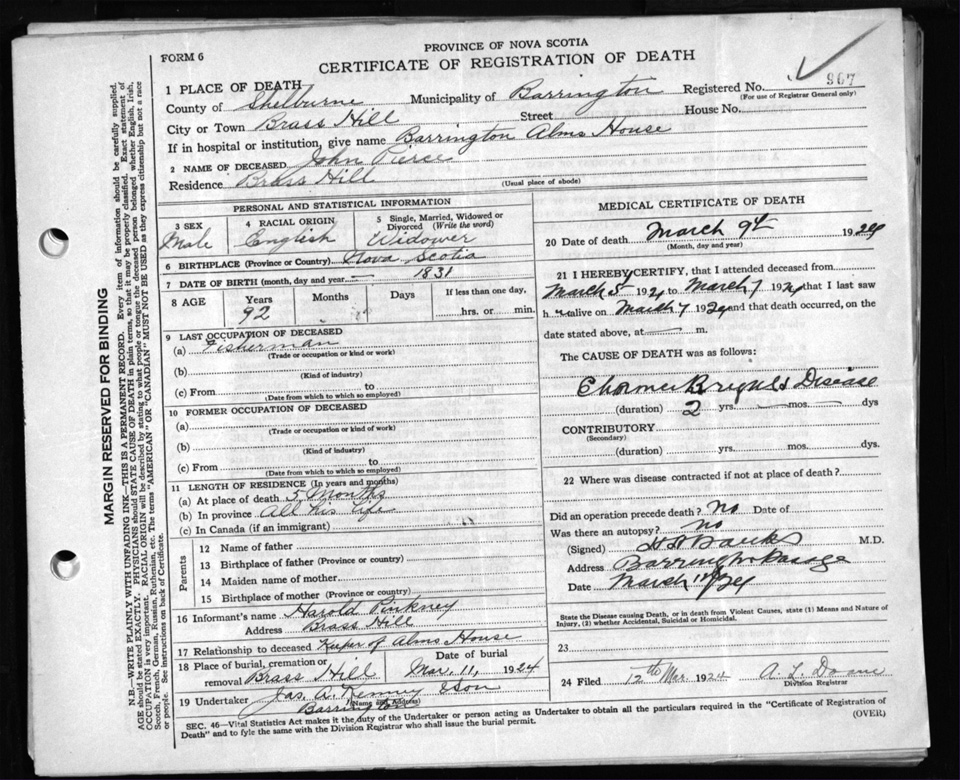 FORM 6
PROVINCE OF NOVA SCOTIA
CERTIFICATE OF REGISTRATION OF DEATH
1 PLACE OF DEATH
Registered No. 967
(For use of Registrar General only)
County of Shelburne Municipality of Barrington
City or Town Brass Hill Street House No.
If in hospital or institution, give name Barrington Alms House
2 NAME OF DECEASED John Pierce
Residence Brass Hill
(Usual place of abode)
PERSONAL AND STATISTICAL INFORMATION
3 SEX 4 RACIAL ORIGIN 5 Single, Married, Widowed or Divorced (Write the word)
Male English Widower
6 BIRTHPLACE (Province or Country) Nova Scotia
7 DATE OF BIRTH (month, day and year) — 1831
8 AGE Years Months Days If less than one day,
92 hrs. or min.
9 LAST OCCUPATION OF DECEASED
(a) Fisherman
(Trade or occupation or kind of work)
(b)
(Kind of industry)
(c) From to
(Date from which to which so employed)
10 FORMER OCCUPATION OF DECEASED
(a)
(Trade or occupation or kind of work)
(b)
(Kind of industry)
(c) From to
(Date from which to which so employed)
11 LENGTH OF RESIDENCE (In years and months)
(a) At place of death 5 Months
(b) In province All his life
(c) In Canada (if an immigrant)
Parents
12 Name of father
13 Birthplace of father (Province or country)
14 Maiden name of mother
15 Birthplace of mother (Province or country)
16 Informant's name Harold Pinkney
Address Brass Hill
17 Relationship to deceased Keeper of Alms House
18 Place of burial, cremation or removal Brass Hill Date of burial Mar. 11, 1924
19 Undertaker Jas. A. Kenney & Son
(Name and Address)
Barrington
MEDICAL CERTIFICATE OF DEATH
20 Date of death March 9th 1924
(Month, day and year)
21 I HEREBY CERTIFY, that I attended deceased from
March 5 1924 to March 7 1924 that I last saw
h alive on March 7 1924 and that death occurred, on the
date stated above, at — m.
The CAUSE OF DEATH was as follows:
Disease
(duration) 2 yrs. — mos. — dys
CONTRIBUTORY
(Secondary)
(duration) yrs. mos. dys.
22 Where was disease contracted if not at place of death?
Did an operation precede death? no Date of
Was there an autopsy? no
(Signed) Banks M.D.
Address Barrington Passage
Date March 24
State the Disease causing Death, or in death from Violent Causes, state (1) Means and Nature of
Injury, (2) whether Accidental, Suicidal or Homicidal.
23
24 Filed 12th Mar. 1924 A. L.
Division Registrar
SEC. 46—Vital Statistics Act makes it the duty of the Undertaker or person acting as Undertaker to obtain all the particulars required in the "Certificate of Registration of
Death" and to fyle the same with the Division Registrar who shall issue the burial permit.
(OVER)
MARGIN RESERVED FOR BINDING
N.B.—WRITE PLAINLY WITH UNFADING INK—THIS IS A PERMANENT RECORD. Every item of information should be carefully supplied.
AGE should be stated EXACTLY. PHYSICIANS should STATE CAUSE OF DEATH in plain terms, so that it may be properly classified. Exact statement of
OCCUPATION is very important. RACIAL ORIGIN will be described by stating to what people or tongue the deceased person belonged whether English, Irish,
Scotch, French, German, Russian, Ruthenian, etc. The terms "AMERICAN" or "CANADIAN" MUST NOT BE USED as they express citizenship but not a race
or people. See instructions on back of Certificate.